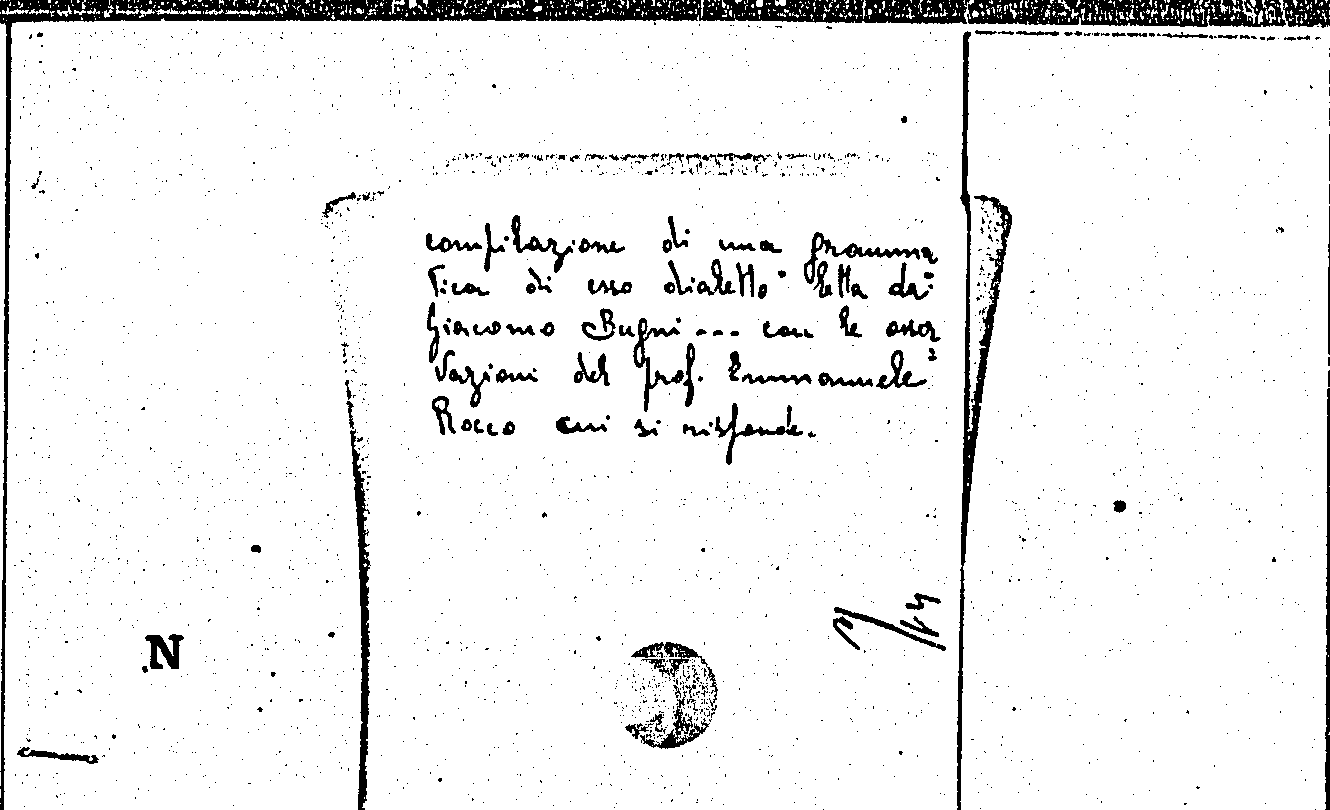 compilazione di una gramma
tica di esso dialetto" letta da:
Giacomo Bugni... con le osser
vazioni del prof. Emmanuele
Rocco cui si risponde.
N